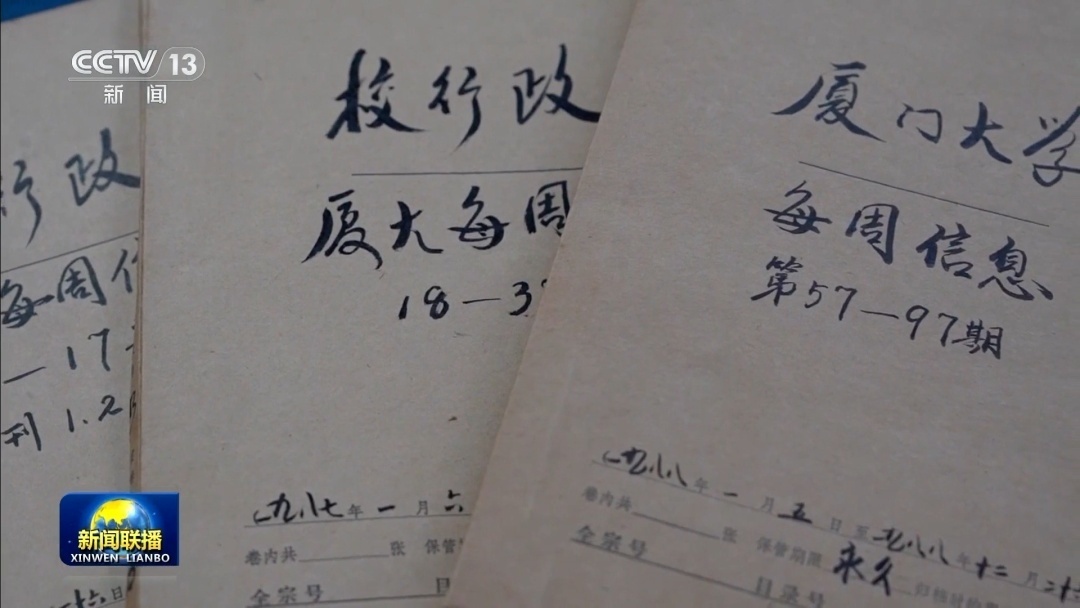 CCTV 13
新闻
行政
每周信
一17
刊 1.2
十六日
校行政
厦大每周
18—3
一九八七年一月六
卷内共 张 保管
全宗号
厦门大学
每周信息
第57—97期
一九八八年一月五日至一九八八年十二月二十
卷内共 张 保管期限 永久
全宗号 目录号
新闻联播
XINWEN-LIANBO